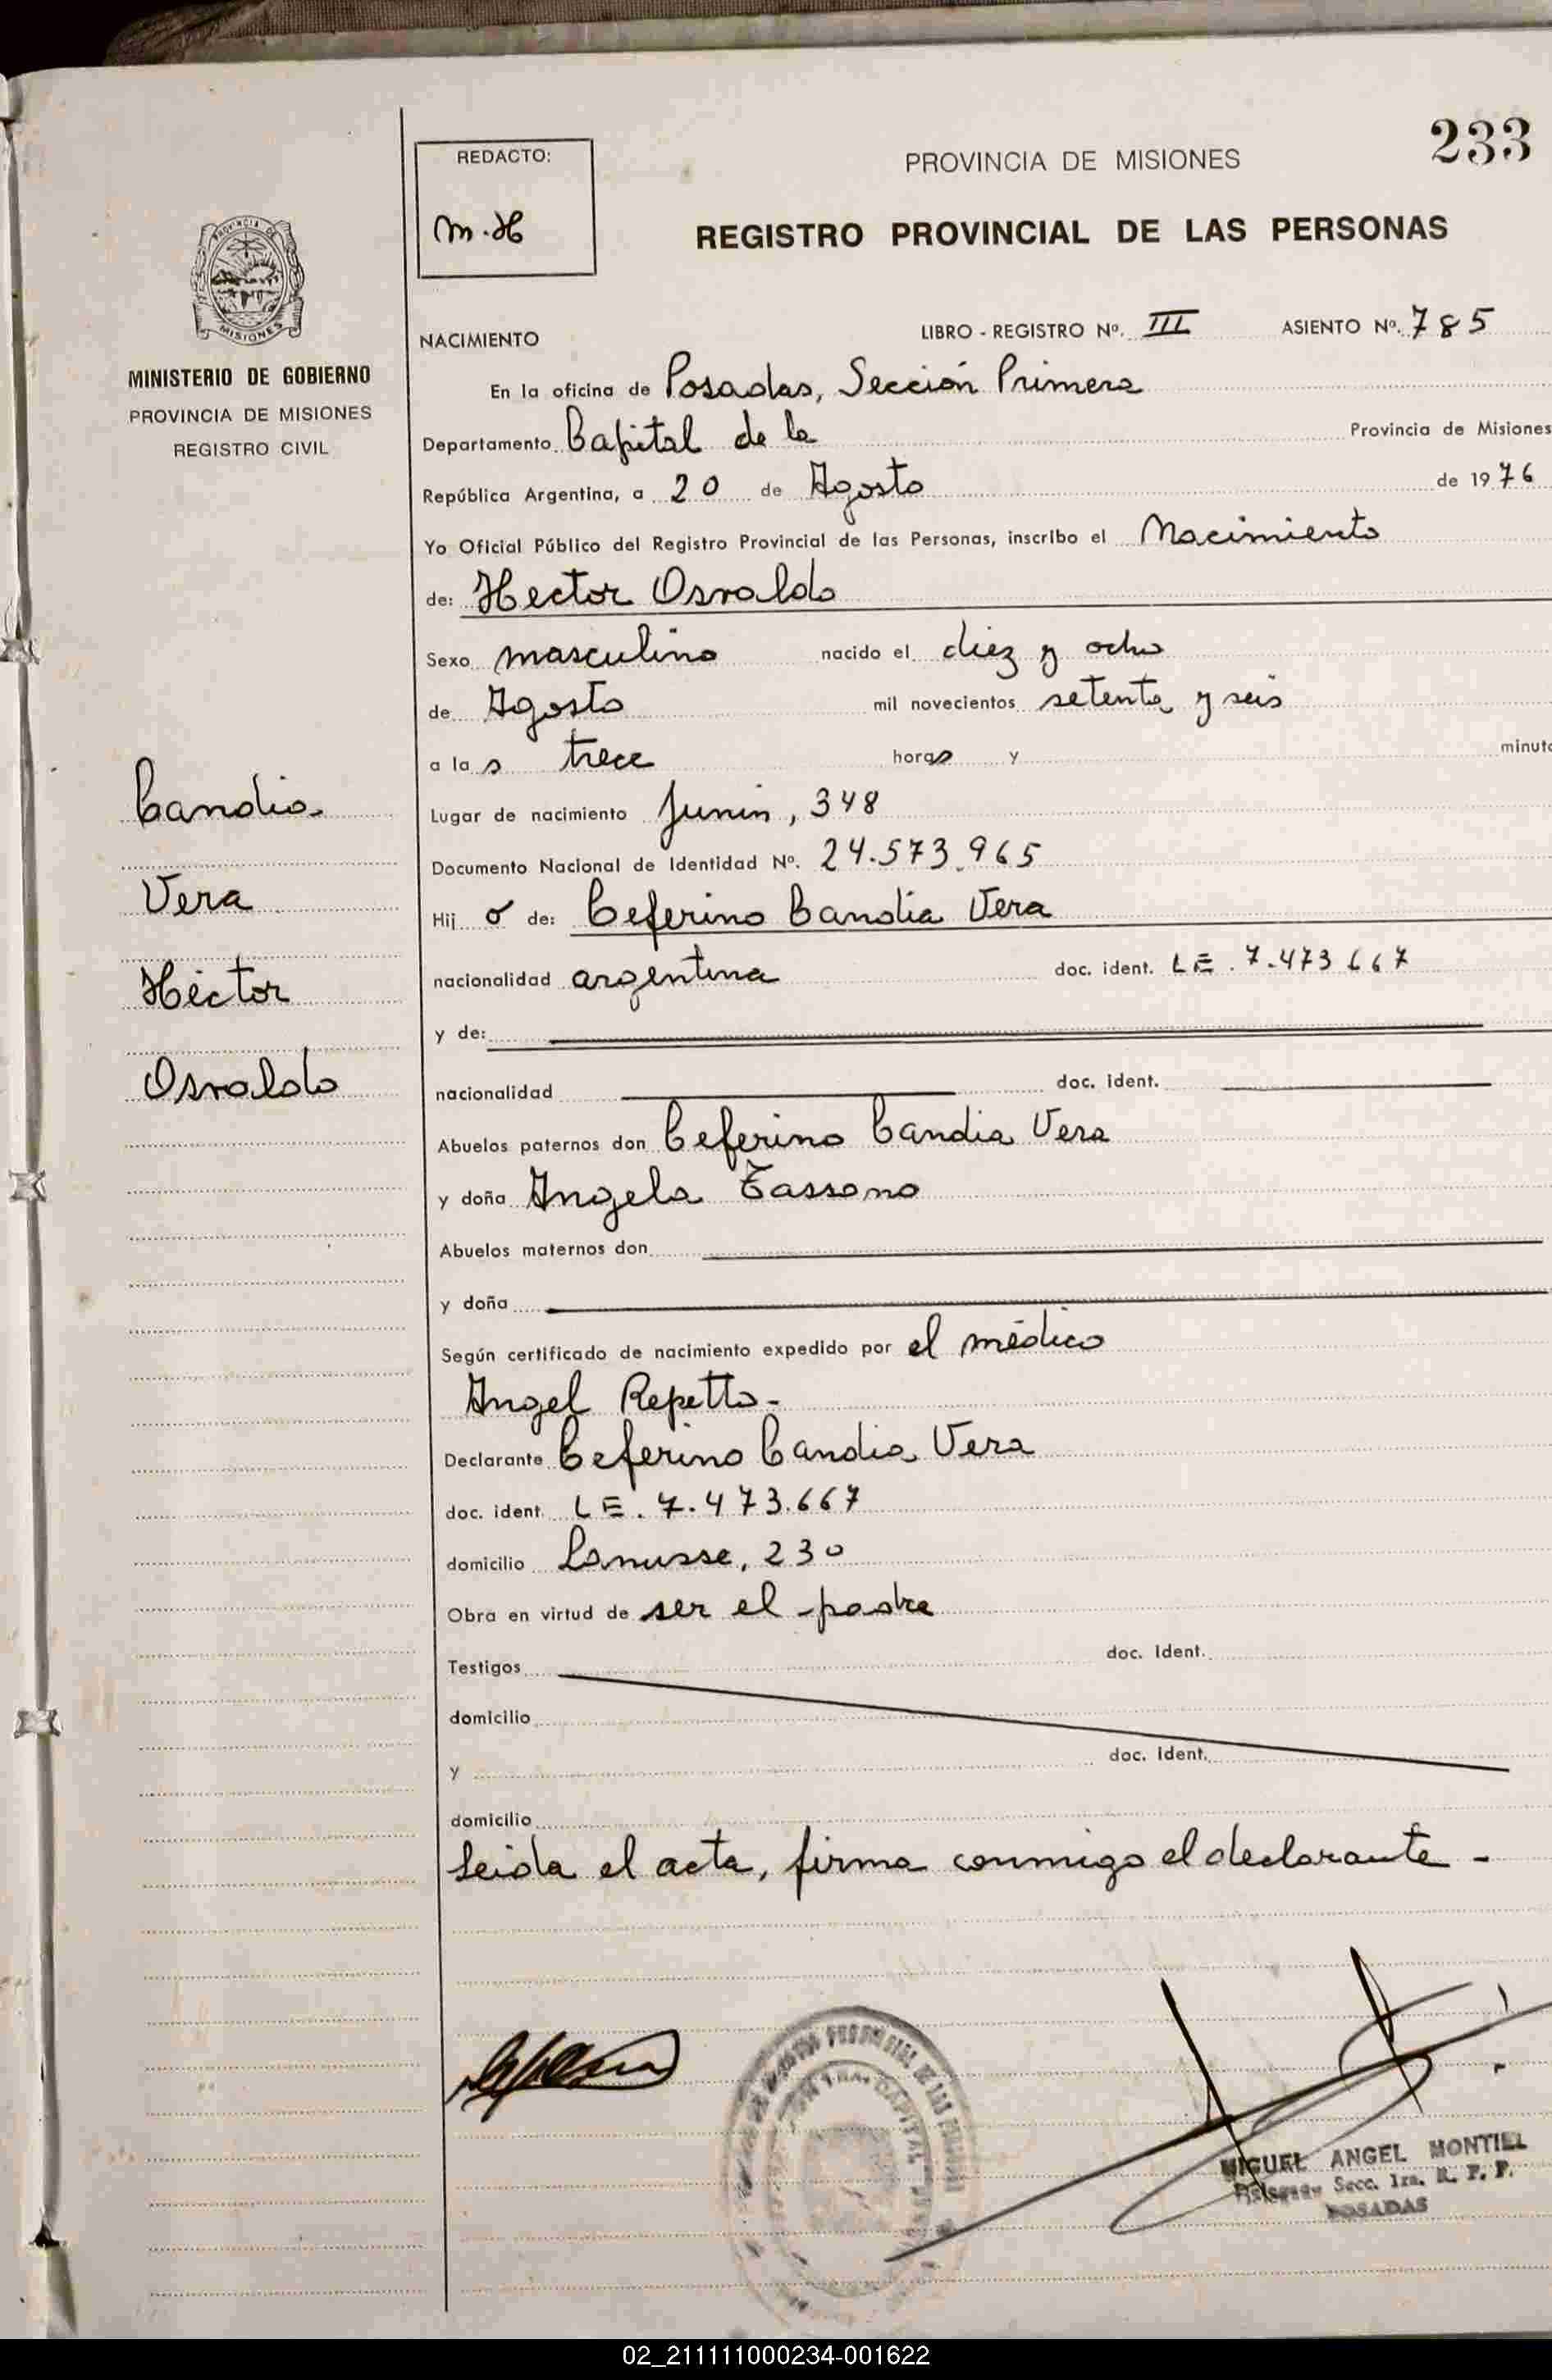 233
REDACTO:
M.H
PROVINCIA DE MISIONES
REGISTRO PROVINCIAL DE LAS PERSONAS
PROVINCIA DE
MISIONES
MINISTERIO DE GOBIERNO
PROVINCIA DE MISIONES
REGISTRO CIVIL
NACIMIENTO LIBRO - REGISTRO Nº. III ASIENTO Nº. 785
En la oficina de Posadas, Sección Primera
Departamento Capital de la Provincia de Misiones
República Argentina, a 20 de Agosto de 1976
Yo Oficial Público del Registro Provincial de las Personas, inscribo el Nacimiento
de: Hector Osvaldo
Sexo masculino nacido el diez y ocho
de Agosto mil novecientos setenta y seis
a las trece horas y minuto
Lugar de nacimiento Junín, 348
Documento Nacional de Identidad Nº. 24.573.965
Hijo de: Ceferino Candia Vera
nacionalidad argentina doc. ident. LE. 7.473.667
y de:
nacionalidad doc. ident.
Abuelos paternos don Ceferino Candia Vera
y doña Angela Tassano
Abuelos maternos don
y doña
Según certificado de nacimiento expedido por el médico
Angel Repetto.-
Declarante Ceferino Candia Vera
doc. ident. LE. 7.473.667
domicilio Lanusse, 230
Obra en virtud de ser el padre
Testigos doc. ident.
domicilio
y doc. ident.
domicilio
Leida el acta, firma conmigo el declarante.-
Candia
Vera
Héctor
Osvaldo
MIGUEL ANGEL MONTIEL
Secc. 1ra. R. P. P.
POSADAS
02_211111000234-001622